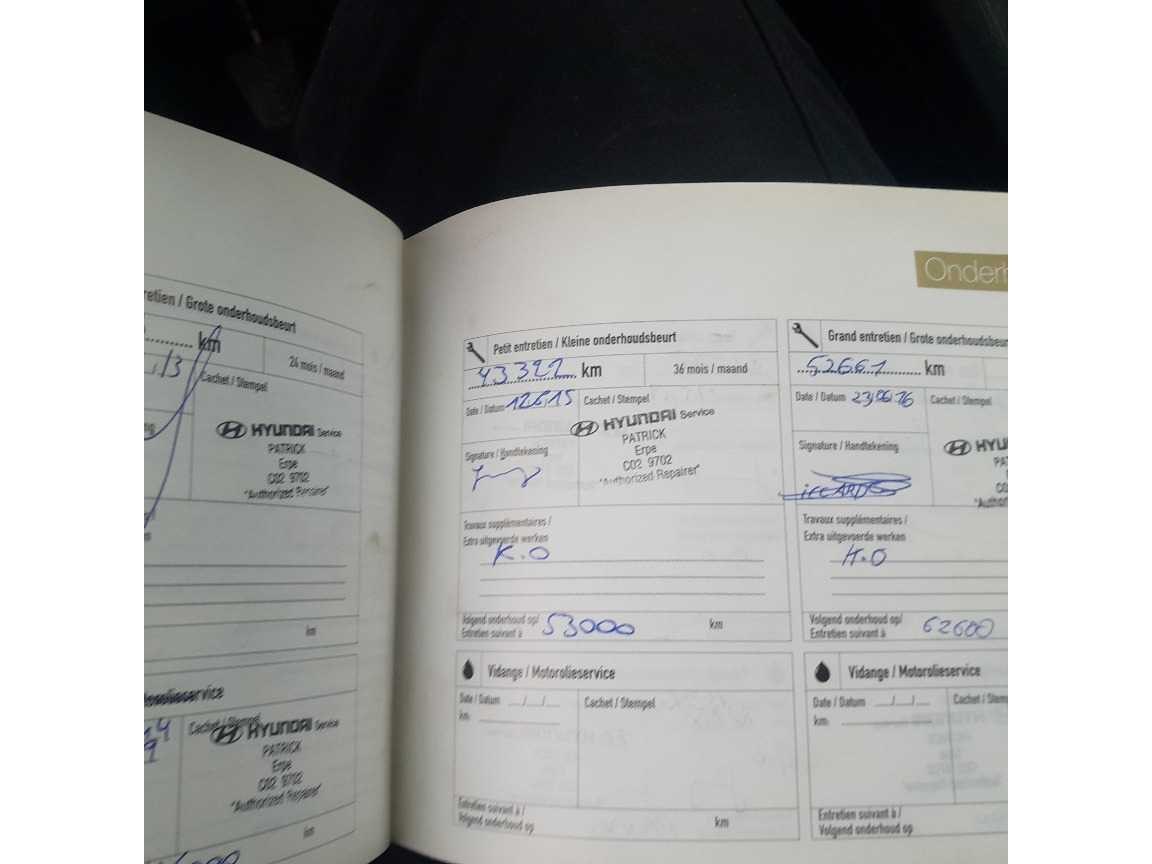 Onderh
retien / Grote onderhoudsbeurt
km
24 mois / maand
Cachet / Stempel
HYUNDAI Service
PATRICK
Erpe
C02 9702
"Authorized Repairer"
km
Cachet / Stempel
HYUNDAI Service
PATRICK
Erpe
C02 9702
"Authorized Repairer"
km
Petit entretien / Kleine onderhoudsbeurt
43322 km
36 mois / maand
Date / Datum 12.6.15
Cachet / Stempel
HYUNDAI Service
PATRICK
Erpe
C02 9702
"Authorized Repairer"
Signature / Handtekening
Travaux supplémentaires /
Extra uitgevoerde werken
K.O
Volgend onderhoud op/
Entretien suivant à 53000 km
Vidange / Motorolieservice
Date / Datum
Cachet / Stempel
km
Entretien suivant à /
Volgend onderhoud op
km
Grand entretien / Grote onderhoudsbeur
52661 km
Date / Datum 23/06/16
Cachet / Stempel
HYU
PA
CO
"Au
Signature / Handtekening
Travaux supplémentaires /
Extra uitgevoerde werken
Volgend onderhoud op/
Entretien suivant à 62600
Vidange / Motorolieservice
Date / Datum
Cachet / Stem
km
Entretien suivant à /
Volgend onderhoud op